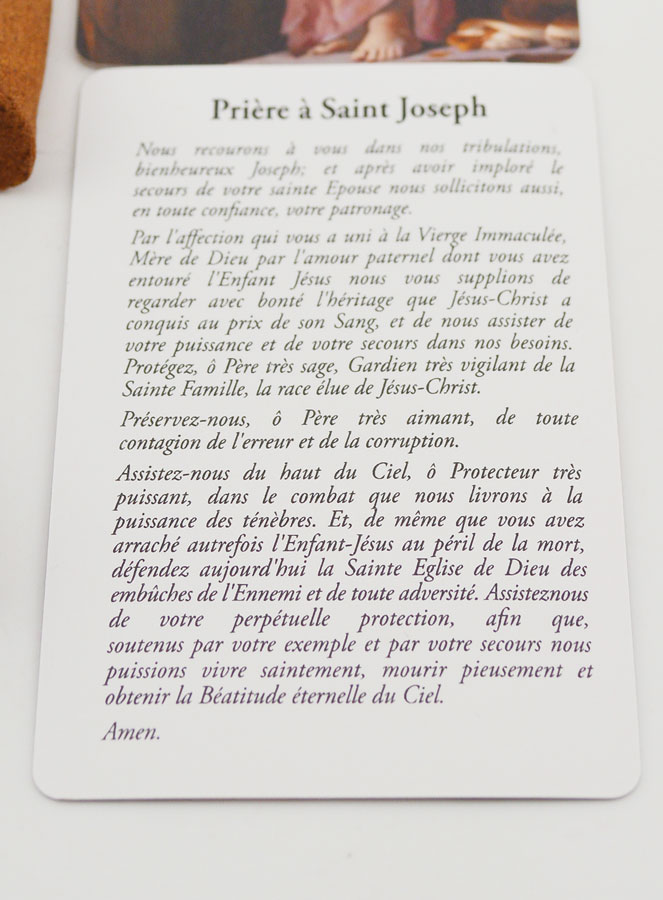 Prière à Saint Joseph
Nous recourons à vous dans nos tribulations,
bienheureux Joseph; et après avoir imploré le
secours de votre sainte Epouse nous sollicitons aussi,
en toute confiance, votre patronage.
Par l'affection qui vous a uni à la Vierge Immaculée,
Mère de Dieu par l'amour paternel dont vous avez
entouré l'Enfant Jésus nous vous supplions de
regarder avec bonté l'héritage que Jésus-Christ a
conquis au prix de son Sang, et de nous assister de
votre puissance et de votre secours dans nos besoins.
Protégez, ô Père très sage, Gardien très vigilant de la
Sainte Famille, la race élue de Jésus-Christ.
Préservez-nous, ô Père très aimant, de toute
contagion de l'erreur et de la corruption.
Assistez-nous du haut du Ciel, ô Protecteur très
puissant, dans le combat que nous livrons à la
puissance des ténèbres. Et, de même que vous avez
arraché autrefois l'Enfant-Jésus au péril de la mort,
défendez aujourd'hui la Sainte Eglise de Dieu des
embûches de l'Ennemi et de toute adversité. Assisteznous
de votre perpétuelle protection, afin que,
soutenus par votre exemple et par votre secours nous
puissions vivre saintement, mourir pieusement et
obtenir la Béatitude éternelle du Ciel.
Amen.